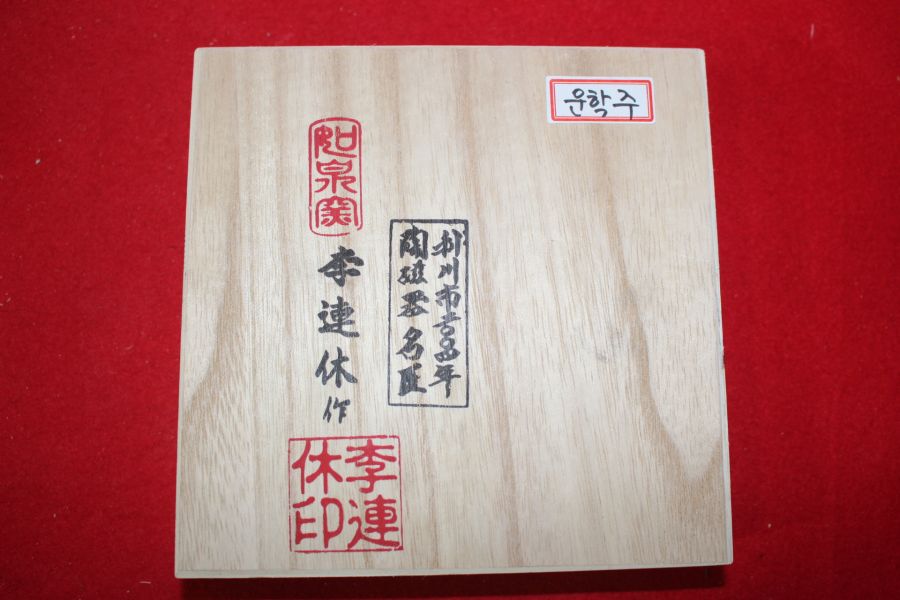 운학주
利川市年
陶磁器名匠
如泉窯
李連休作
李連
休印